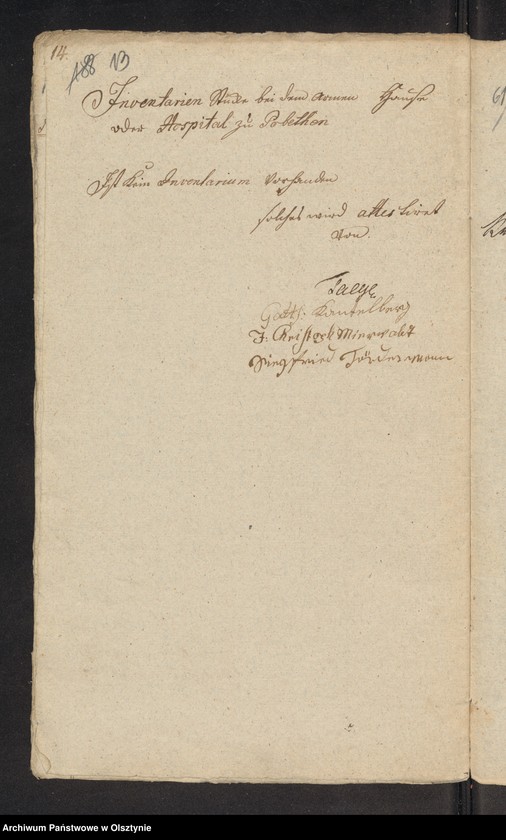 14.
188 13
Inventarien Stücke bei dem armen Hause
oder Hospital zu Pobethen
Ist Kein Inventarium Vorhanden
solches wird attestiret
Von.
Taege
Gottf: Kantelberg
J. Christoph
Siegfried
Archiwum Państwowe w Olsztynie